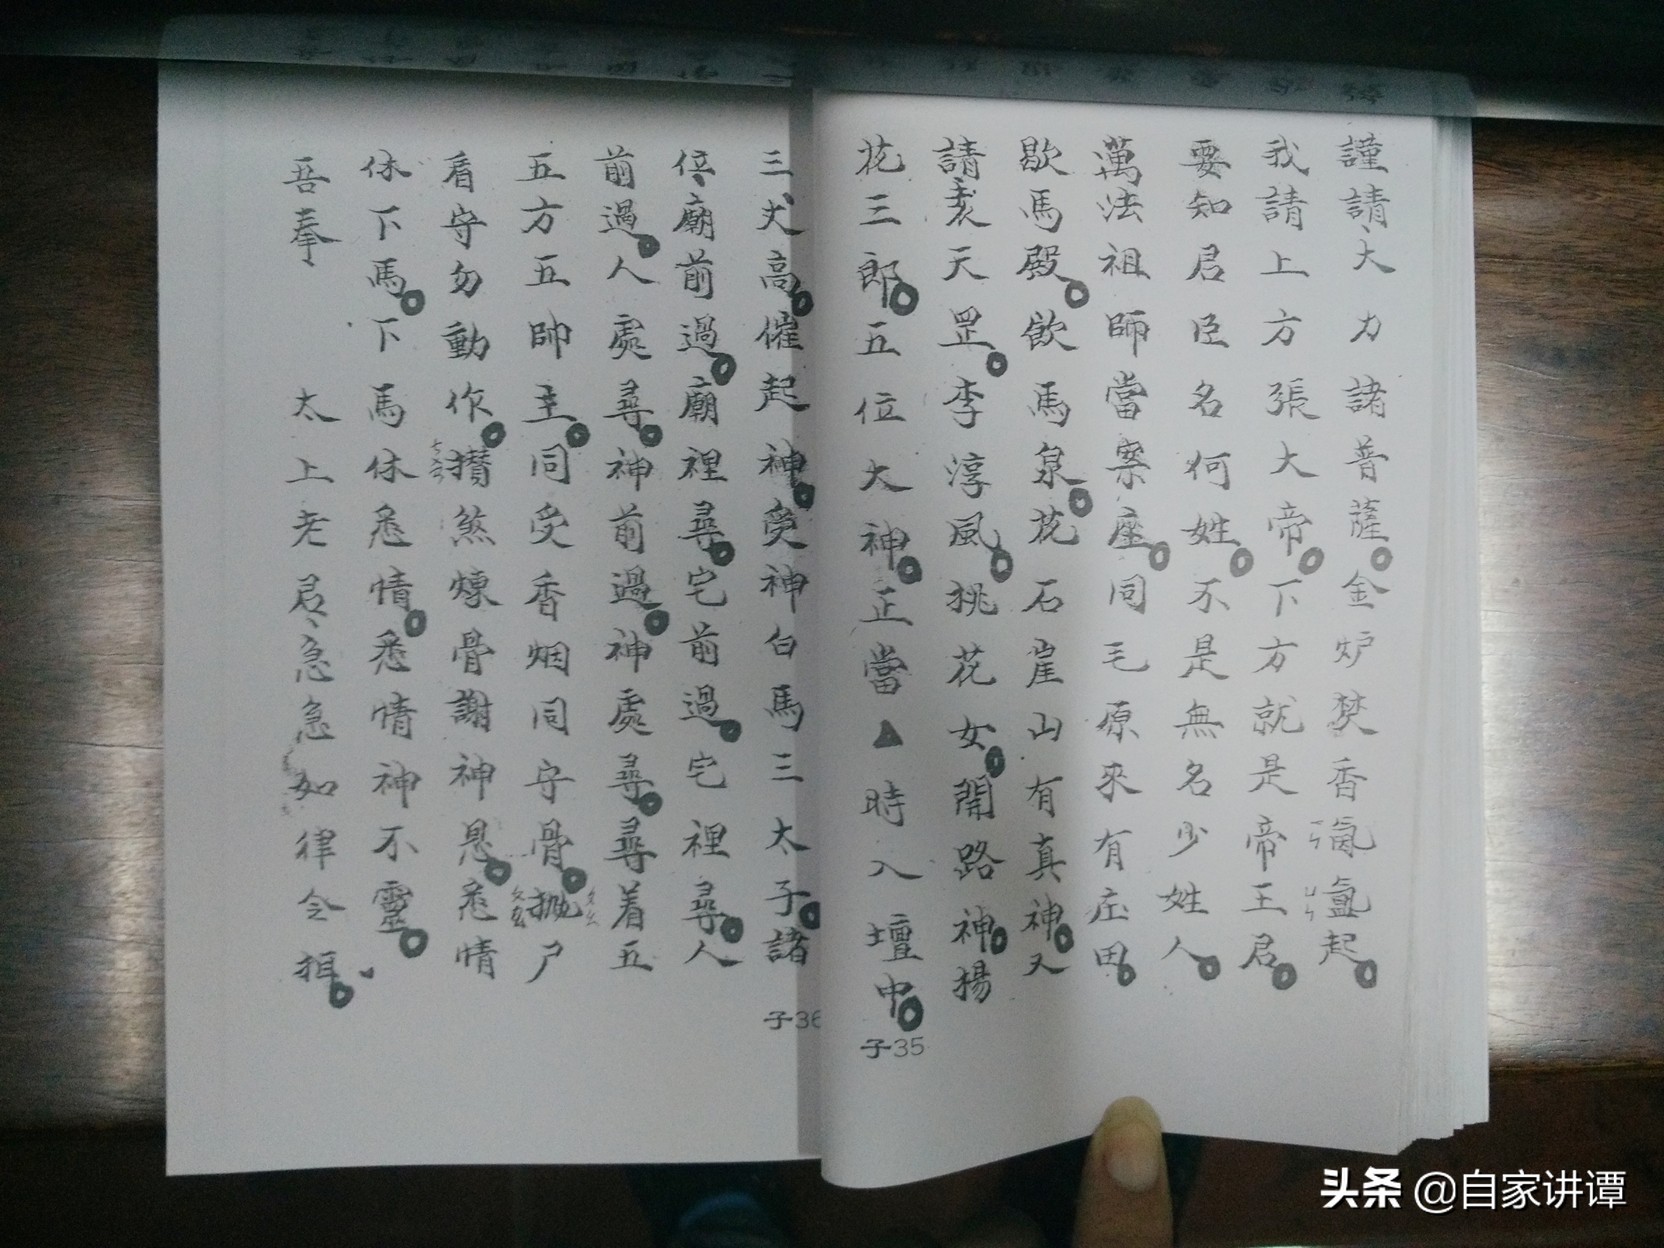 謹請大力諸菩薩。金炉焚香氤氳起。
我請上方張大帝。下方就是帝王君。
要知君臣名何姓。不是無名少姓人。
萬法祖師當案座。同毛原來有庄田。
歇馬殿。飲馬泉。花石崖山有真神。又
請袁天罡。李淳風。桃花女。開路神。楊
花三郎。五位大神。正當▲時入壇中。
子35
三丈高。催起神。受神白馬三太子。諸
位廟前過。廟裡尋。宅前過。宅裡尋。人
前過。人處尋。神前過。神處尋。尋着五
五方五帥主。同受香烟同守骨。拋尸
看守勿動作。攢煞煉骨謝神恩。悉情
休下馬。下馬休悉情。悉情神不靈。
吾奉 太上老君急急如律令
子36
头条 @自家讲谭